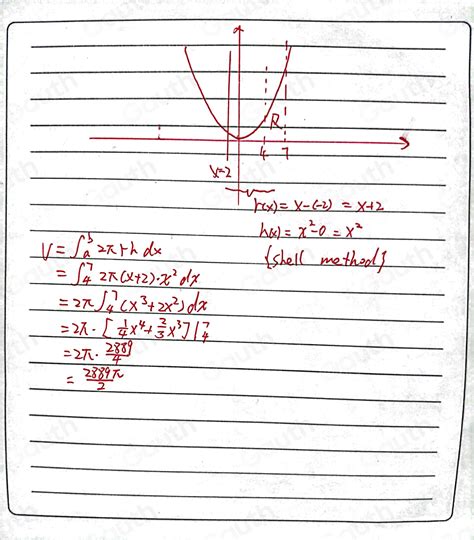 R
4 7
x=2
r(x) = x-(-2) = x+2
h(x) = x²-0 = x²
{shell method}
V = ∫ₐᵇ 2πrh dx
= ∫₄⁷ 2π(x+2)·x² dx
= 2π ∫₄⁷ (x³+2x²) dx
= 2π · [¼x⁴+⅔x³]|₄⁷
= 2π · 2889/4
= 2889π/2